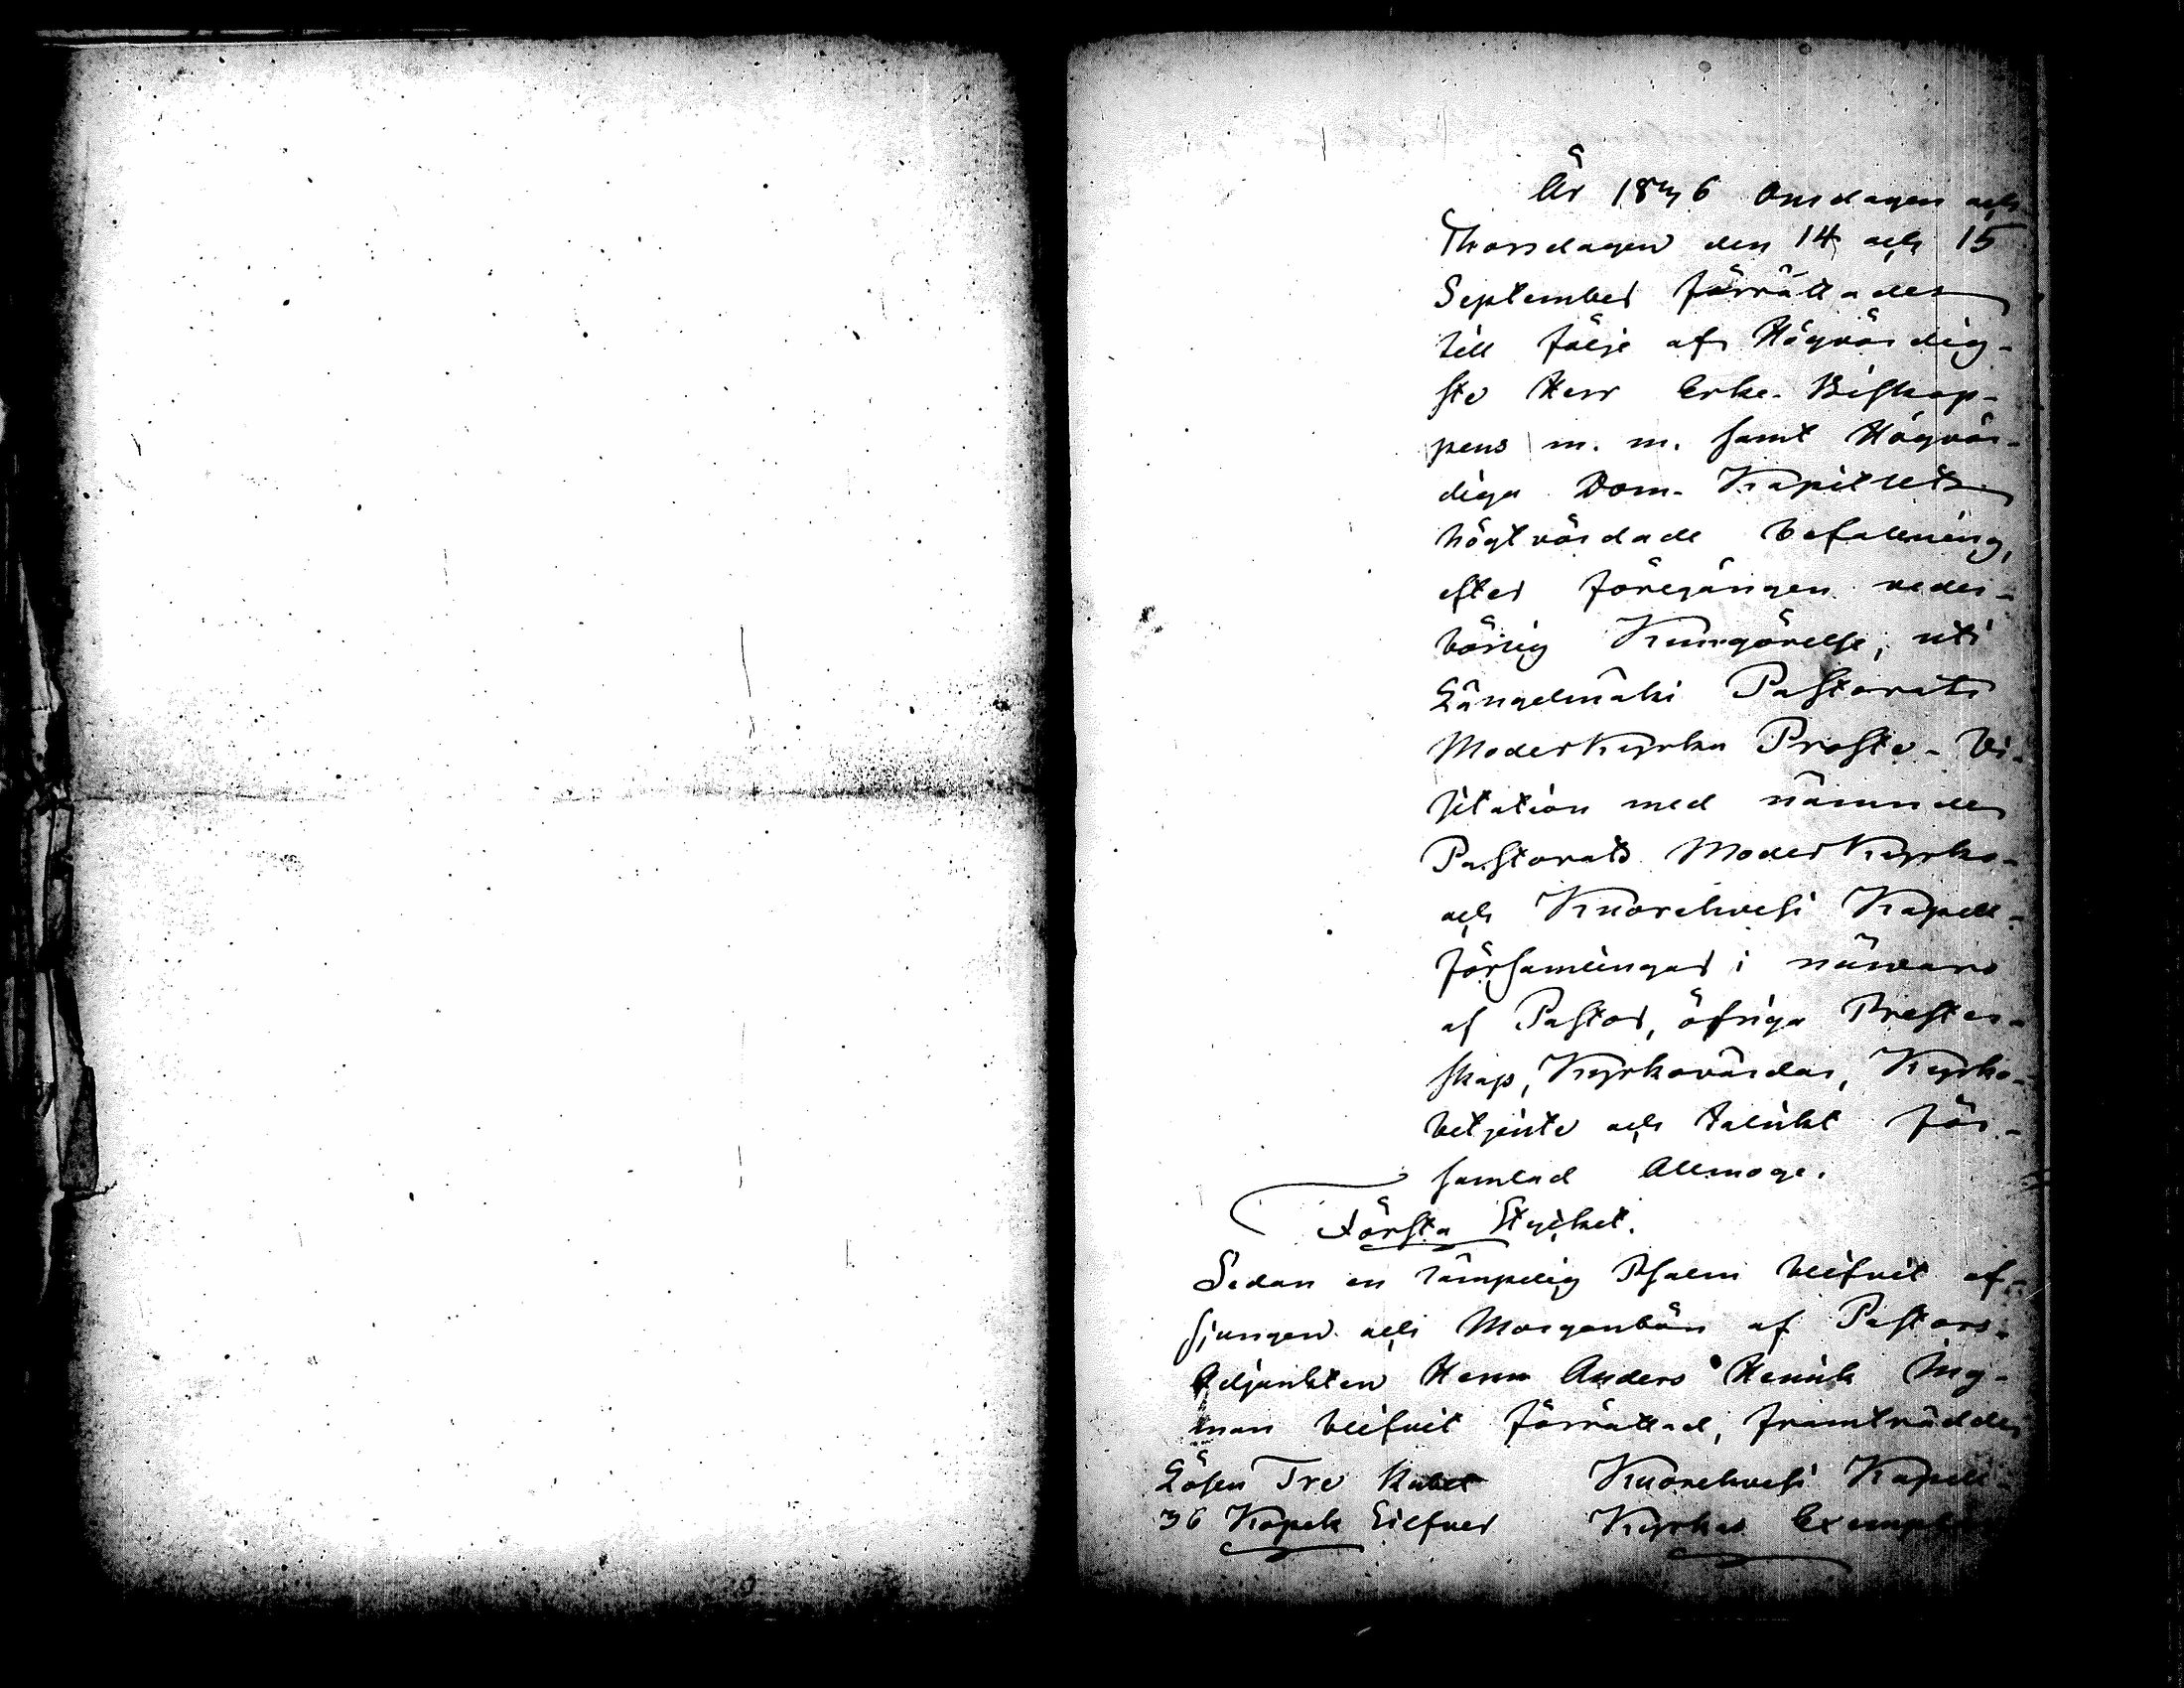 År 1836 Onsdagen och
Thorsdagen den 14 och 15
September förrättades
till följe af Högvördig-
ste Herr Erke-Biskop-
pens m. m. samt Högvör-
diga Dom-Kapitlets
högtvördade befallning,
efter föregången veder-
börlig Kungörelse, uti
Längelmäki Pastorats
Moderkyrka Proste-Vi-
sitation med nämnde
Pastorats Moderkyrko-
och Kuorehvesi Kapell-
församlingar i närvaro
af Pastor, öfriga Prester-
skap, Kyrkovärdar, Kyrko-
betjente och talrikt för-
samlad Allmoge.
Första Stycket.
Sedan en lämpelig Psalm blifvit af-
sjungen och Morgonbön af Pastors-
Adjunkten Herr Anders Henrik Ing-
man blifvit förrättad, framträdde
Lösen Tre Rubel Kuorehvesi Kapell-
36 Kopek Silfver Kyrkas Exemplar